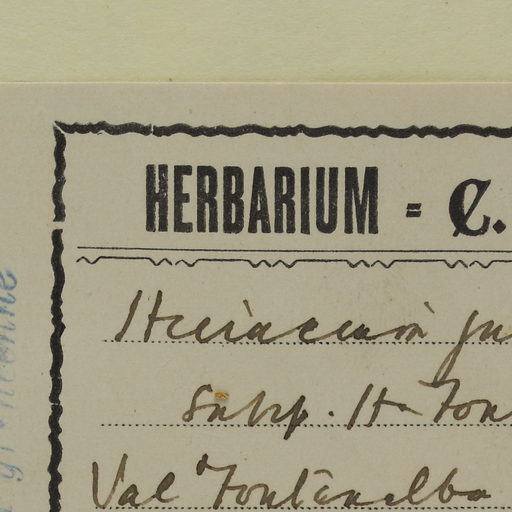 HERBARIUM = C.
Hieracium
Subsp. H.
Val Fontanalba